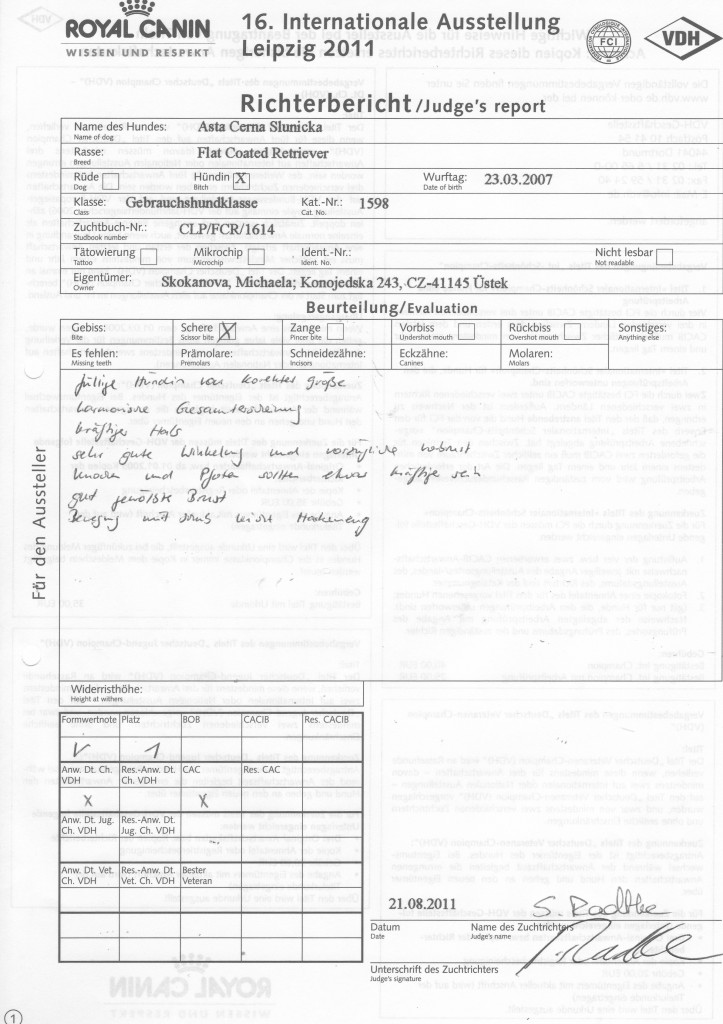 ROYAL CANIN
WISSEN UND RESPEKT
16. Internationale Ausstellung
Leipzig 2011
FCI
VDH
Richterbericht/Judge's report
Name des Hundes: Asta Cerna Slunicka
Name of dog
Rasse: Flat Coated Retriever
Breed
Rüde Hündin X Wurftag: 23.03.2007
Dog Bitch Date of birth
Klasse: Gebrauchshundklasse Kat.-Nr.: 1598
Class Cat. No.
Zuchtbuch-Nr.: CLP/FCR/1614
Studbook number
Tätowierung Mikrochip Ident.-Nr.: Nicht lesbar
Tattoo Microchip Ident. No. Not readable
Eigentümer: Skokanova, Michaela; Konojedska 243, CZ-41145 Üstek
Owner
Beurteilung/Evaluation
Gebiss: Schere X Zange Vorbiss Rückbiss Sonstiges:
Bite Scissor bite Pincer bite Undershot mouth Overshot mouth Anything else
Es fehlen: Prämolare: Schneidezähne: Eckzähne: Molaren:
Missing teeth Premolars Incisors Canines Molars
Hündin von korekter größe
harmonische Gesamterscheinung
kräftiger Hals
sehr gute Winkelung und vorzügliche vorbrust
Knochen und Pfoten sollten etwas kräftiger sein
gut gewölbte Brust
Bewegung mit
Für den Aussteller
Widerristhöhe:
Height at withers
Formwertnote Platz BOB CACIB Res. CACIB
V 1
Anw. Dt. Ch. VDH Res.-Anw. Dt. Ch. VDH CAC Res. CAC
X X
Anw. Dt. Jug. Ch. VDH Res.-Anw. Dt. Jug. Ch. VDH
Anw. Dt. Vet. Ch. VDH Res.-Anw. Dt. Vet. Ch. VDH Bester Veteran
21.08.2011 S. Radtke
Datum Name des Zuchtrichters
Date Judge's name
Unterschrift des Zuchtrichters
Judge's signature
1